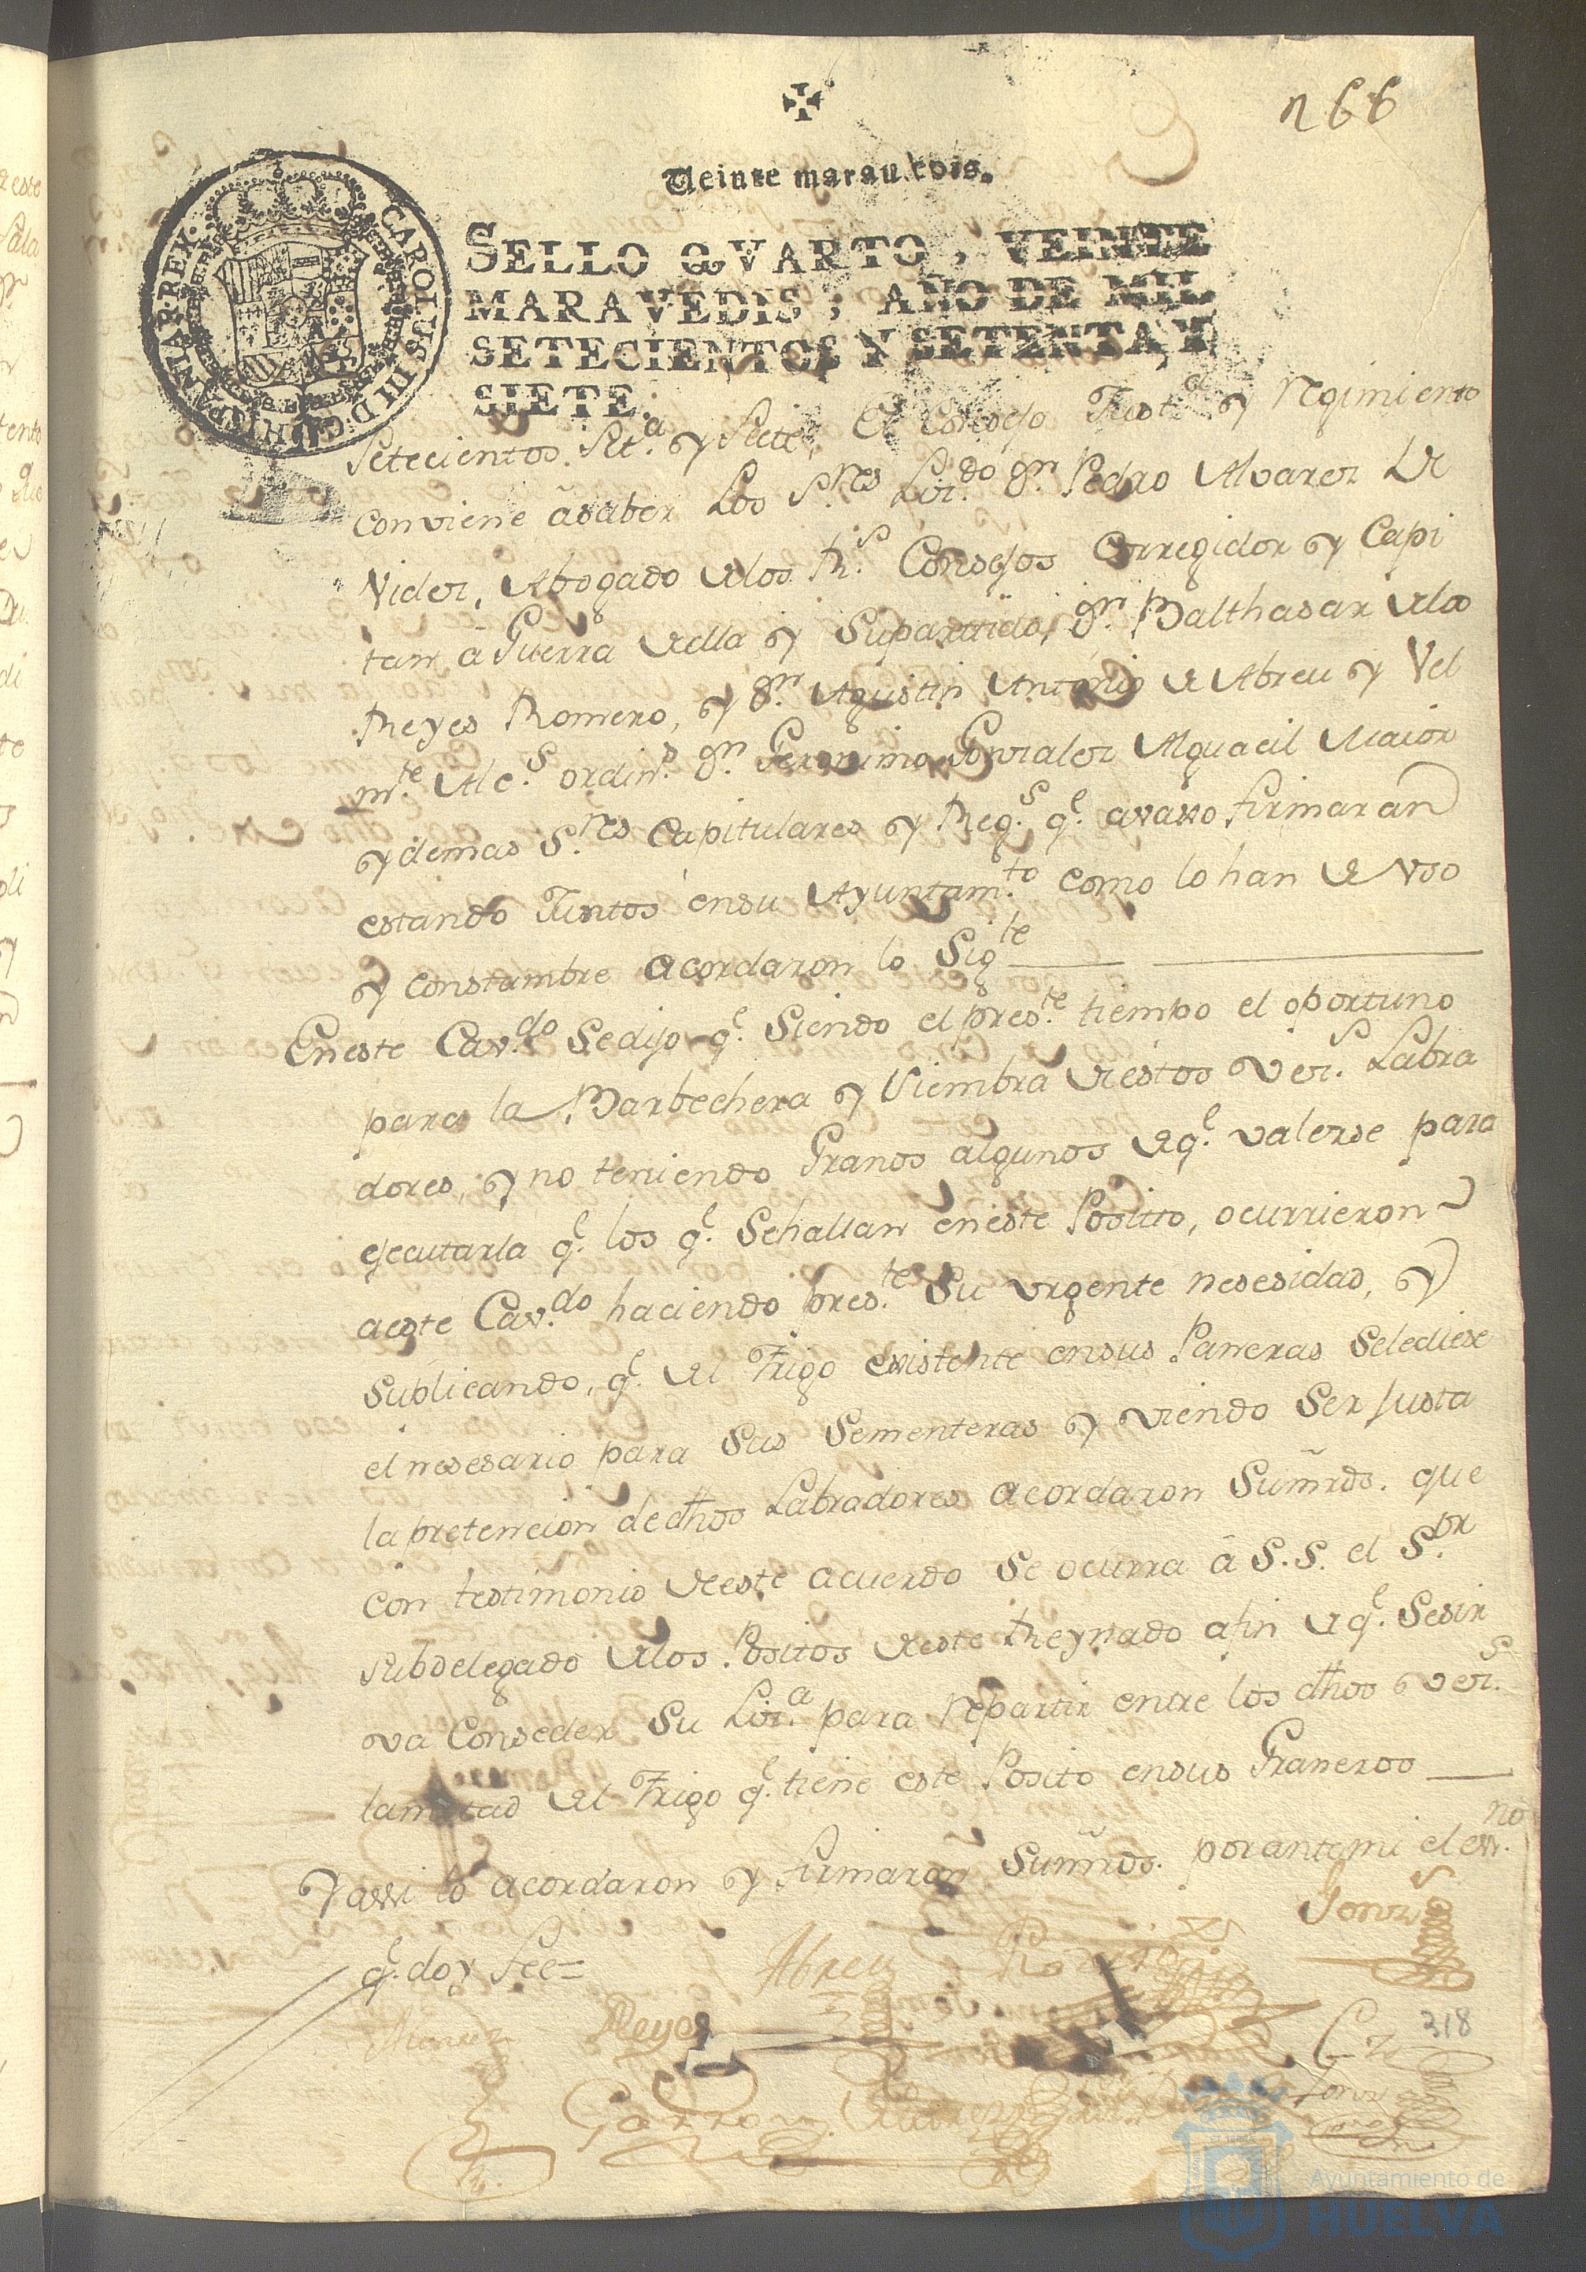 266
Veinte marauedis.
SELLO QVARTO, VEINTE
MARAVEDIS, AÑO DE MIL
SETECIENTOS Y SETENTA Y
SIETE.
CAROLUS III D G HISPANIAR REX
Setecientos Set.ª y Siete, El Consejo Just.ª y Regimiento
conviene âsaber Los S.res Liz.do Dn. Pedro Alvarez De
Nidez, Abogado delos R.s Consejos Corregidor y Capi
tan â Guerra della y Supartido, Dn. Balthasar delos
Reyes Romero, y Dn. Agustin Antonio de Abreu y Vel
m.te Alc.s ordin.s Dn. Geronimo Gonzalez Alguacil Maior
y demas S.res Capitulares y Reg.s q.e avaxo firmaran
estando Juntos ensu Ayuntam.to como lo han de vso
y constumbre acordaron lo Sig.te
Eneste Cav.do Sedijo q.e Siendo el pres.te tiempo el oportuno
para la Barbechera y Siembra destos vez.s Labra
dores, y no teniendo Granos algunos deq.e valerse para
ejecutarla q.e los q.e Sehallan eneste Posito, ocurrieron
aeste Cav.do haciendo pres.te Su vrgente nesesidad, y
suplicando, q.e del Trigo existente ensus Paneras Selediese
el nesesario para Sus Sementeras y viendo Ser Justa
la pretencion dedhos Labradores acordaron Sumrds. que
con testimonio deeste acuerdo Se ocurra â S.S. el S.or
subdelegado delos Positos deeste Reynado afin deq.e Sesir
va Conseder Su Liz.ª para repartir entre los dhos vez.s
lamitad del Trigo q.e tiene este Posito ensus Graneros
Yassi lo acordaron y firmaran Sumrds. porantemi el ess.no
q.e doy fee=
Abreu
Gonz.s
Alvarez
Reyes
Garzon
318
Ayuntamiento de
HUELVA